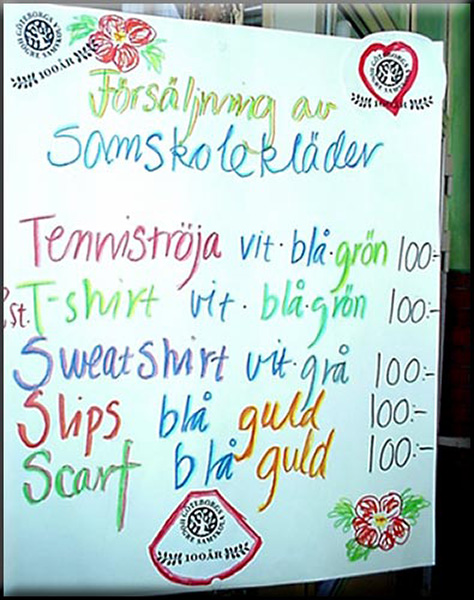 GÖTEBORGS HÖGRE SAMSKOLA
100 ÅR
GÖTEBORGS HÖGRE SAMSKOLA
100 ÅR
Försäljning av
Samskolekläder
Tenniströja vit · blå · grön 100:-
st. T-shirt vit · blå · grön 100:-
Sweatshirt vit · grå 100:-
Slips blå guld 100:-
Scarf blå guld 100:-
GÖTEBORGS HÖGRE SAMSKOLA
100 ÅR